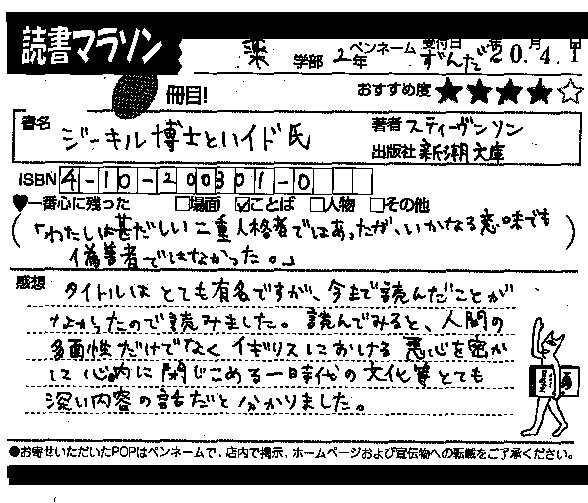 読書マラソン
薬 学部 2年 ペンネーム ずんだ 受付日 20.4.1
冊目!
おすすめ度 ★★★★☆
書名 ジーキル博士とハイド氏
著者 スティーヴンソン
出版社 新潮文庫
ISBN 4-10-200301-0
♥一番心に残った □場面 ☑ことば □人物 □その他
(「わたしは甚だしい二重人格者ではあったが、いかなる意味でも
偽善者ではなかった。」)
感想 タイトルはとても有名ですが、今まで読んだことが
なかったので読みました。読んでみると、人間の
多面性だけでなくイギリスにおける悪心を密か
に心内に閉じこめる一時代の文化等とても
深い内容の話だと分かりました。
●お寄せいただいたPOPはペンネームで、店内で掲示、ホームページおよび宣伝物への転載をご了承ください。